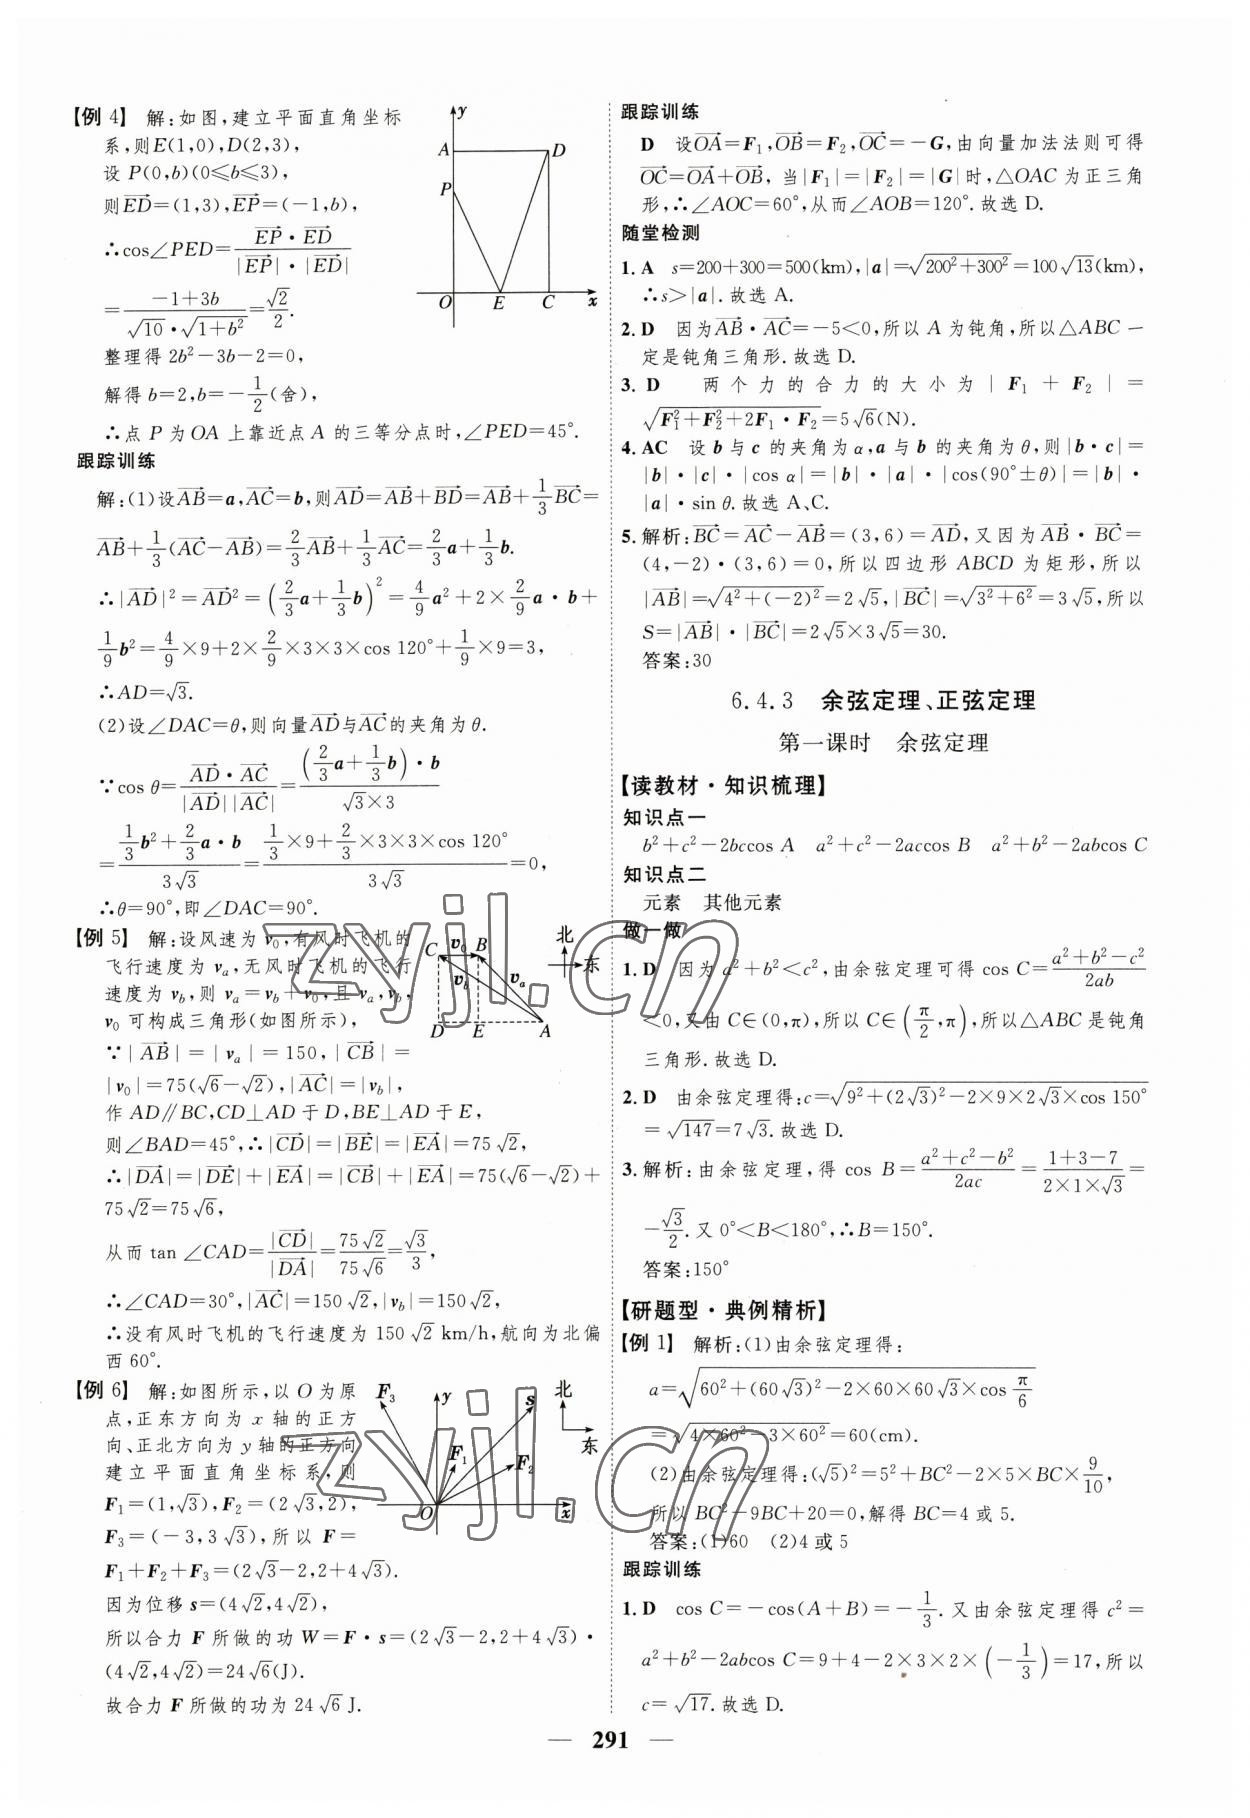 【例 4】 解:如图,建立平面直角坐标
系,则E(1,0),D(2,3),
设 P(0,b)(0≤b≤3),
则$\overrightarrow{ED}$=(1,3),$\overrightarrow{EP}$=(-1,b),
∴cos∠PED=$\frac{\overrightarrow{EP}·\overrightarrow{ED}}{|\overrightarrow{EP}|·|\overrightarrow{ED}|}$
=$\frac{-1+3b}{\sqrt{10}·\sqrt{1+b^2}}$=$\frac{\sqrt{2}}{2}$.
整理得 2b²-3b-2=0,
解得 b=2,b=-$\frac{1}{2}$(舍),
∴点 P 为 OA 上靠近点 A 的三等分点时,∠PED=45°.
y
A
D
P
O
E
C
x
跟踪训练
解:(1)设$\overrightarrow{AB}$=a,$\overrightarrow{AC}$=b,则$\overrightarrow{AD}$=$\overrightarrow{AB}$+$\overrightarrow{BD}$=$\overrightarrow{AB}$+$\frac{1}{3}\overrightarrow{BC}$=
$\overrightarrow{AB}$+$\frac{1}{3}$($\overrightarrow{AC}$-$\overrightarrow{AB}$)=$\frac{2}{3}\overrightarrow{AB}$+$\frac{1}{3}\overrightarrow{AC}$=$\frac{2}{3}$a+$\frac{1}{3}$b.
∴|$\overrightarrow{AD}$|²=$\overrightarrow{AD}$²=($\frac{2}{3}$a+$\frac{1}{3}$b)²=$\frac{4}{9}$a²+2×$\frac{2}{9}$a·b+
$\frac{1}{9}$b²=$\frac{4}{9}$×9+2×$\frac{2}{9}$×3×3×cos 120°+$\frac{1}{9}$×9=3,
∴AD=$\sqrt{3}$.
(2)设∠DAC=θ,则向量$\overrightarrow{AD}$与$\overrightarrow{AC}$的夹角为 θ.
∵cos θ=$\frac{\overrightarrow{AD}·\overrightarrow{AC}}{|\overrightarrow{AD}||\overrightarrow{AC}|}$=$\frac{(\frac{2}{3}a+\frac{1}{3}b)·b}{\sqrt{3}×3}$
=$\frac{\frac{1}{3}b^2+\frac{2}{3}a·b}{3\sqrt{3}}$=$\frac{\frac{1}{3}×9+\frac{2}{3}×3×3×cos 120°}{3\sqrt{3}}$=0,
∴θ=90°,即∠DAC=90°.
【例 5】 解:设风速为 v₀,有风时飞机的
飞行速度为 vₐ,无风时飞机的飞行
速度为 v_b,则 vₐ=v_b+v₀,且 vₐ,v_b,
v₀ 可构成三角形(如图所示),
∵|$\overrightarrow{AB}$|=|vₐ|=150,|$\overrightarrow{CB}$|=
|v₀|=75($\sqrt{6}$-$\sqrt{2}$),|$\overrightarrow{AC}$|=|v_b|,
作 AD∥BC,CD⊥AD 于 D,BE⊥AD 于 E,
则∠BAD=45°,∴|$\overrightarrow{CD}$|=|$\overrightarrow{BE}$|=|$\overrightarrow{EA}$|=75$\sqrt{2}$,
∴|$\overrightarrow{DA}$|=|$\overrightarrow{DE}$|+|$\overrightarrow{EA}$|=|$\overrightarrow{CB}$|+|$\overrightarrow{EA}$|=75($\sqrt{6}$-$\sqrt{2}$)+
75$\sqrt{2}$=75$\sqrt{6}$,
从而 tan ∠CAD=$\frac{|\overrightarrow{CD}|}{|\overrightarrow{DA}|}$=$\frac{75\sqrt{2}}{75\sqrt{6}}$=$\frac{\sqrt{3}}{3}$,
∴∠CAD=30°,|$\overrightarrow{AC}$|=150$\sqrt{2}$,|v_b|=150$\sqrt{2}$,
∴没有风时飞机的飞行速度为 150$\sqrt{2}$ km/h,航向为北偏
西 60°.
C v₀ B
v_b
vₐ
D E A
北
东
【例 6】 解:如图所示,以 O 为原
点,正东方向为 x 轴的正方
向、正北方向为 y 轴的正方向
建立平面直角坐标系,则
F₁=(1,$\sqrt{3}$),F₂=(2$\sqrt{3}$,2),
F₃=(-3,3$\sqrt{3}$),所以 F=
F₁+F₂+F₃=(2$\sqrt{3}$-2,2+4$\sqrt{3}$).
因为位移 s=(4$\sqrt{2}$,4$\sqrt{2}$),
所以合力 F 所做的功 W=F·s=(2$\sqrt{3}$-2,2+4$\sqrt{3}$)·
(4$\sqrt{2}$,4$\sqrt{2}$)=24$\sqrt{6}$(J).
故合力 F 所做的功为 24$\sqrt{6}$ J.
F₃
y
s
F₁
F₂
O
x
北
东
跟踪训练
D 设$\overrightarrow{OA}$=F₁,$\overrightarrow{OB}$=F₂,$\overrightarrow{OC}$=-G,由向量加法法则可得
$\overrightarrow{OC}$=$\overrightarrow{OA}$+$\overrightarrow{OB}$, 当|F₁|=|F₂|=|G|时,△OAC 为正三角
形,∴∠AOC=60°,从而∠AOB=120°.故选 D.
随堂检测
1. A s=200+300=500(km),|a|=$\sqrt{200^2+300^2}$=100$\sqrt{13}$(km),
∴s>|a|.故选 A.
2. D 因为$\overrightarrow{AB}$·$\overrightarrow{AC}$=-5<0,所以 A 为钝角,所以△ABC 一
定是钝角三角形.故选 D.
3. D 两个力的合力的大小为|F₁+F₂|=
$\sqrt{F_1^2+F_2^2+2F_1·F_2}$=5$\sqrt{6}$(N).
4. AC 设 b 与 c 的夹角为 α,a 与 b 的夹角为 θ,则|b·c|=
|b|·|c|·|cos α|=|b|·|a|·|cos(90°±θ)|=|b|·
|a|·sin θ.故选 A、C.
5. 解析:$\overrightarrow{BC}$=$\overrightarrow{AC}$-$\overrightarrow{AB}$=(3,6)=$\overrightarrow{AD}$,又因为$\overrightarrow{AB}$·$\overrightarrow{BC}$=
(4,-2)·(3,6)=0,所以四边形 ABCD 为矩形,所以
|$\overrightarrow{AB}$|=$\sqrt{4^2+(-2)^2}$=2$\sqrt{5}$,|$\overrightarrow{BC}$|=$\sqrt{3^2+6^2}$=3$\sqrt{5}$,所以
S=|$\overrightarrow{AB}$|·|$\overrightarrow{BC}$|=2$\sqrt{5}$×3$\sqrt{5}$=30.
答案:30
6.4.3 余弦定理、正弦定理
第一课时 余弦定理
【读教材·知识梳理】
知识点一
b²+c²-2bccos A a²+c²-2accos B a²+b²-2abcos C
知识点二
元素 其他元素
做一做
1. D 因为 a²+b²<c²,由余弦定理可得 cos C=$\frac{a^2+b^2-c^2}{2ab}$
<0,又由 C∈(0,π),所以 C∈($\frac{π}{2}$,π),所以△ABC 是钝角
三角形.故选 D.
2. D 由余弦定理得:c=$\sqrt{9^2+(2\sqrt{3})^2-2×9×2\sqrt{3}×cos 150°}$
=$\sqrt{147}$=7$\sqrt{3}$.故选 D.
3. 解析:由余弦定理,得 cos B=$\frac{a^2+c^2-b^2}{2ac}$=$\frac{1+3-7}{2×1×\sqrt{3}}$=
-$\frac{\sqrt{3}}{2}$.又 0°<B<180°,∴B=150°.
答案:150°
【研题型·典例精析】
【例 1】 解析:(1)由余弦定理得:
a=$\sqrt{60^2+(60\sqrt{3})^2-2×60×60\sqrt{3}×cos\frac{π}{6}}$
=$\sqrt{4×60^2-3×60^2}$=60(cm).
(2)由余弦定理得:($\sqrt{5}$)²=5²+BC²-2×5×BC×$\frac{9}{10}$,
所以 BC²-9BC+20=0,解得 BC=4 或 5.
答案:(1)60 (2)4 或 5
跟踪训练
1. D cos C=-cos(A+B)=-$\frac{1}{3}$.又由余弦定理得 c²=
a²+b²-2abcos C=9+4-2×3×2×(-$\frac{1}{3}$)=17,所以
c=$\sqrt{17}$.故选 D.
— 291 —
zyjl.cn
zyjl.cn